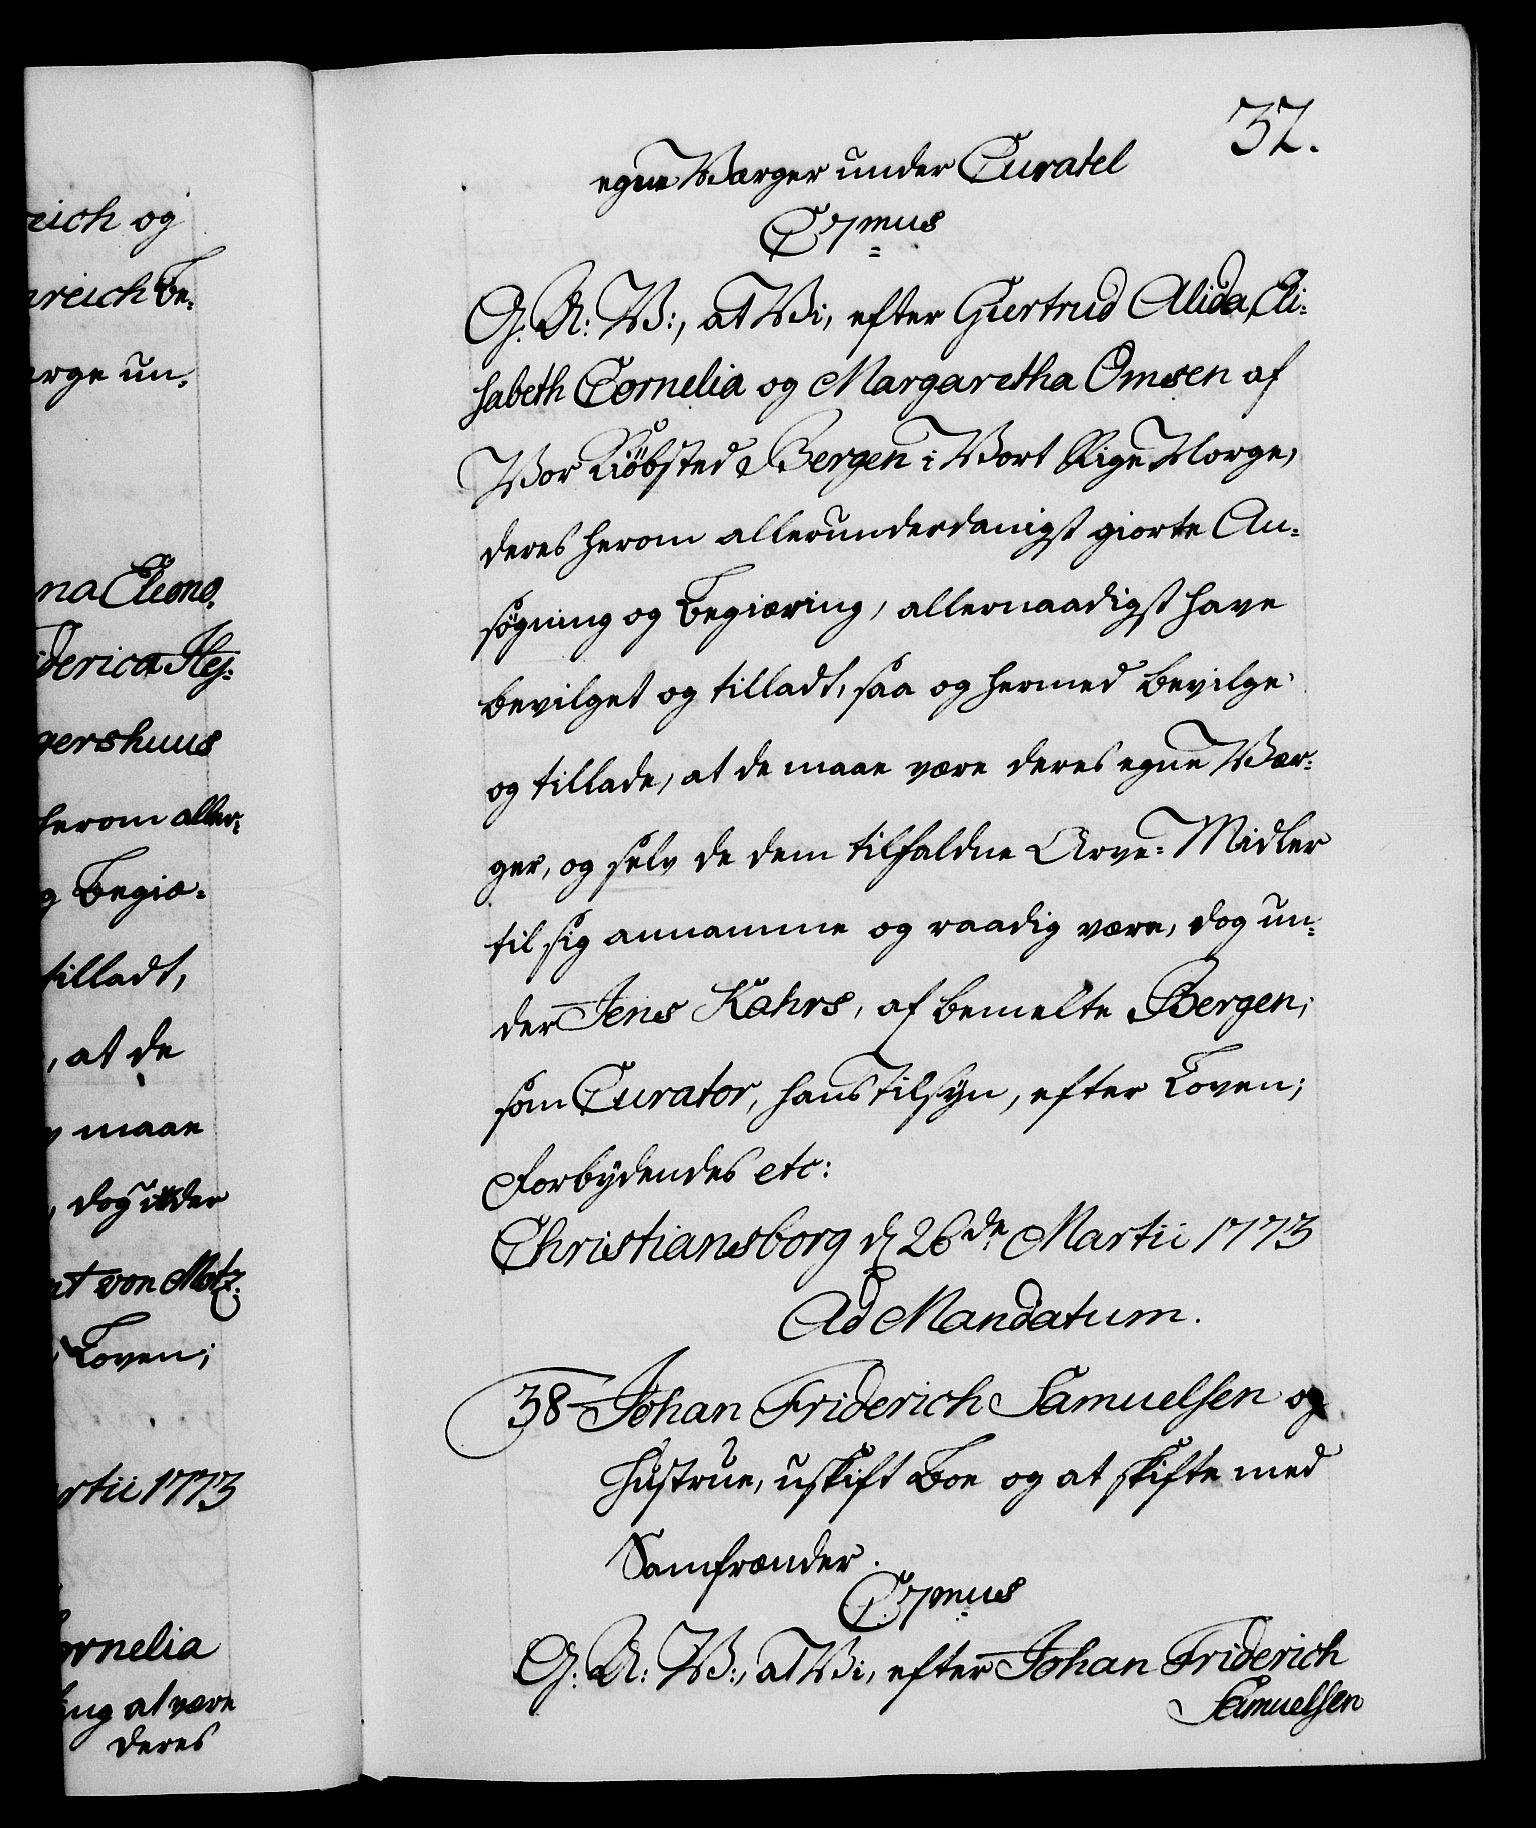 eich og
areich be-
erge un-
na Eleono-
iderica Hej-
gershuus
herom aller-
g begiæ-
tilladt,
, at de
maae
, dog under
nt von Motz-
Loven;
artii 1773
ornelia
ing at være
deres
32.
egne Værger under Curatel
C7mus
G. A: V:, at Vi, efter Giertrud Alida, Eli-
sabeth Cornelia og Margaretha Omsen af
Vor Kiöbsted Bergen i Vort Rige Norge,
deres herom allerunderdanigst giorte An-
søgning og begiæring, allernaadigst have
bevilget og tilladt, saa og hermed bevilge
og tillade, at de maae være deres egne Vær-
ger, og selv de dem tilfaldne Arve-Midler
til sig annamme og raadig være, dog un-
der Jens Kahrs, af bemelte Bergen,
som Curator, hans Tilsyn, efter Loven;
Forbydendes etc:
Christiansborg d 26de Martii 1773
Ad Mandatum.
38 Johan Friderich Samuelsen og
Hustrue, uskift Boe og at skifte med
Samfrænder.
C7mus
G: A: V:, at Vi, efter Johan Friderich
Samuelsen